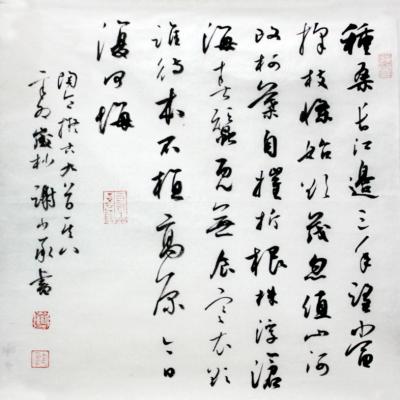 種桑長江邊三年望當
採枝條始欲茂忽值山河
改柯葉自摧折根株浮滄
海春蠶既無食寒衣欲
誰待本不植高原今日
復何悔
陶擬古九首其八
歲杪謝小書